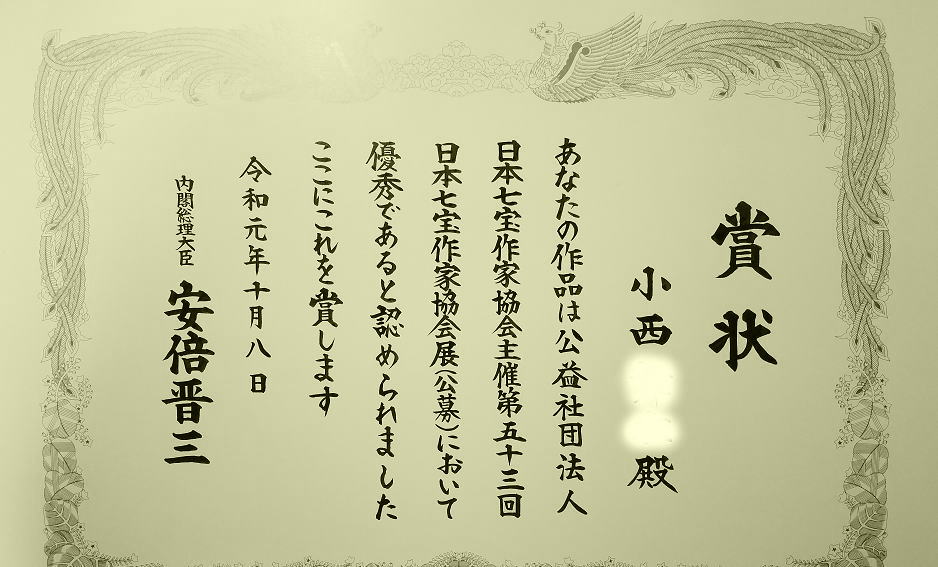 賞状
小西 殿
あなたの作品は公益社団法人
日本七宝作家協会主催第五十三回
日本七宝作家協会展(公募)において
優秀であると認められました
ここにこれを賞します
令和元年十月八日
内閣総理大臣 安倍晋三